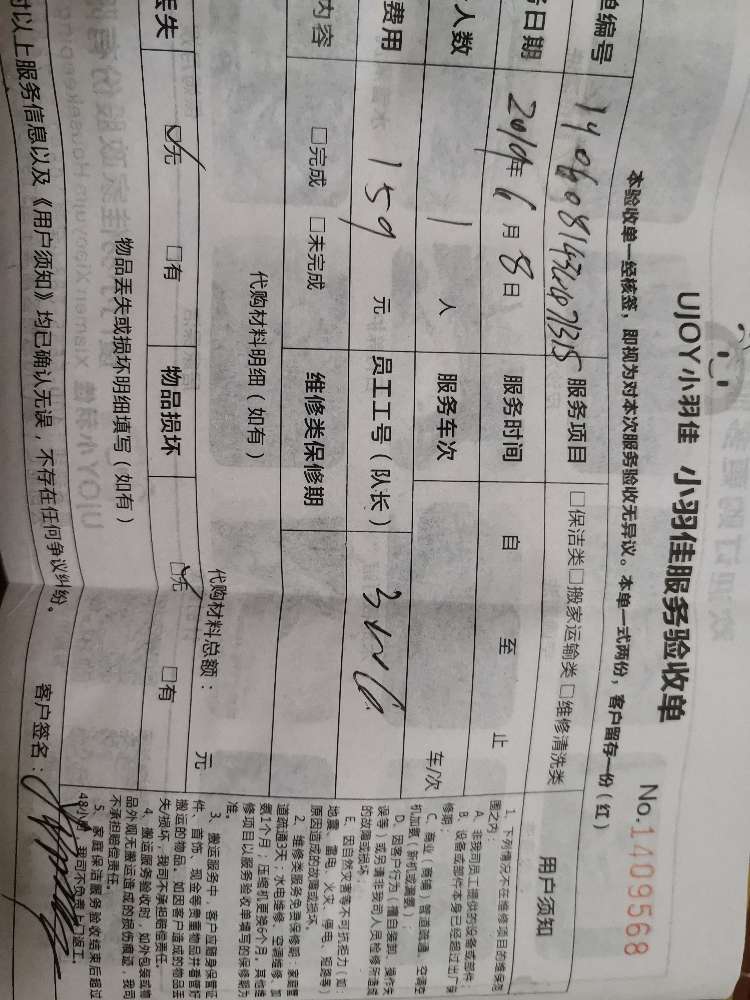 UJOY小羽佳 小羽佳服务验收单
No.1409568
本验收单一经核签，即视为对本次服务验收无异议。本单一式两份，客户留存一份（红）
单编号
服务项目 □保洁类□搬家运输类□维修清洗类
日期 2019年6月8日 服务时间 自 至 止
人数 1 人 服务车次 车/次
费用 159 元 员工工号（队长）
内容 □完成 □未完成 维修类保修期
代购材料明细（如有）
代购材料总额： 元
丢失 ☑无 □有 物品损坏 ☑无 □有
物品丢失或损坏明细填写（如有）
对以上服务信息以及《用户须知》均已确认无误，不存在任何争议纠纷。
客户签名：
用户须知
1、下列情况不在维修项目的维保范
围之内：
A、非我司员工提供的设备或部件；
B、设备或部件本身已经超过出厂保
修期；
C、商业（商铺）管道疏通、空调空
机加氨（新机或漏氨）；
D、因客户行为（擅自装卸、操作失
误等）或另请非我司人员检修所造成
的故障或损坏；
E、因自然灾害等不可抗拒力（如：
地震、雷电、火灾、停电、短路等）
原因造成的故障或损坏
2、维修类服务免费保修期：家庭管
道疏通3天，水电维修、空调维修、加
氨1个月；压缩机更换6个月，其他维
修项目以服务验收单填写的保修期为
准。
3、搬运服务中，客户应随身保管证
件、首饰、现金等贵重物品并看管好
搬运的物品。如因客户造成的物品丢
失损坏，我司不承担赔偿责任。
4、搬运服务验收时，如外包装或物
品外观无搬运造成的损伤痕迹，我司
不承担赔偿责任。
5、家庭保洁服务验收结束后超过
48小时，我司不负责上门返工。